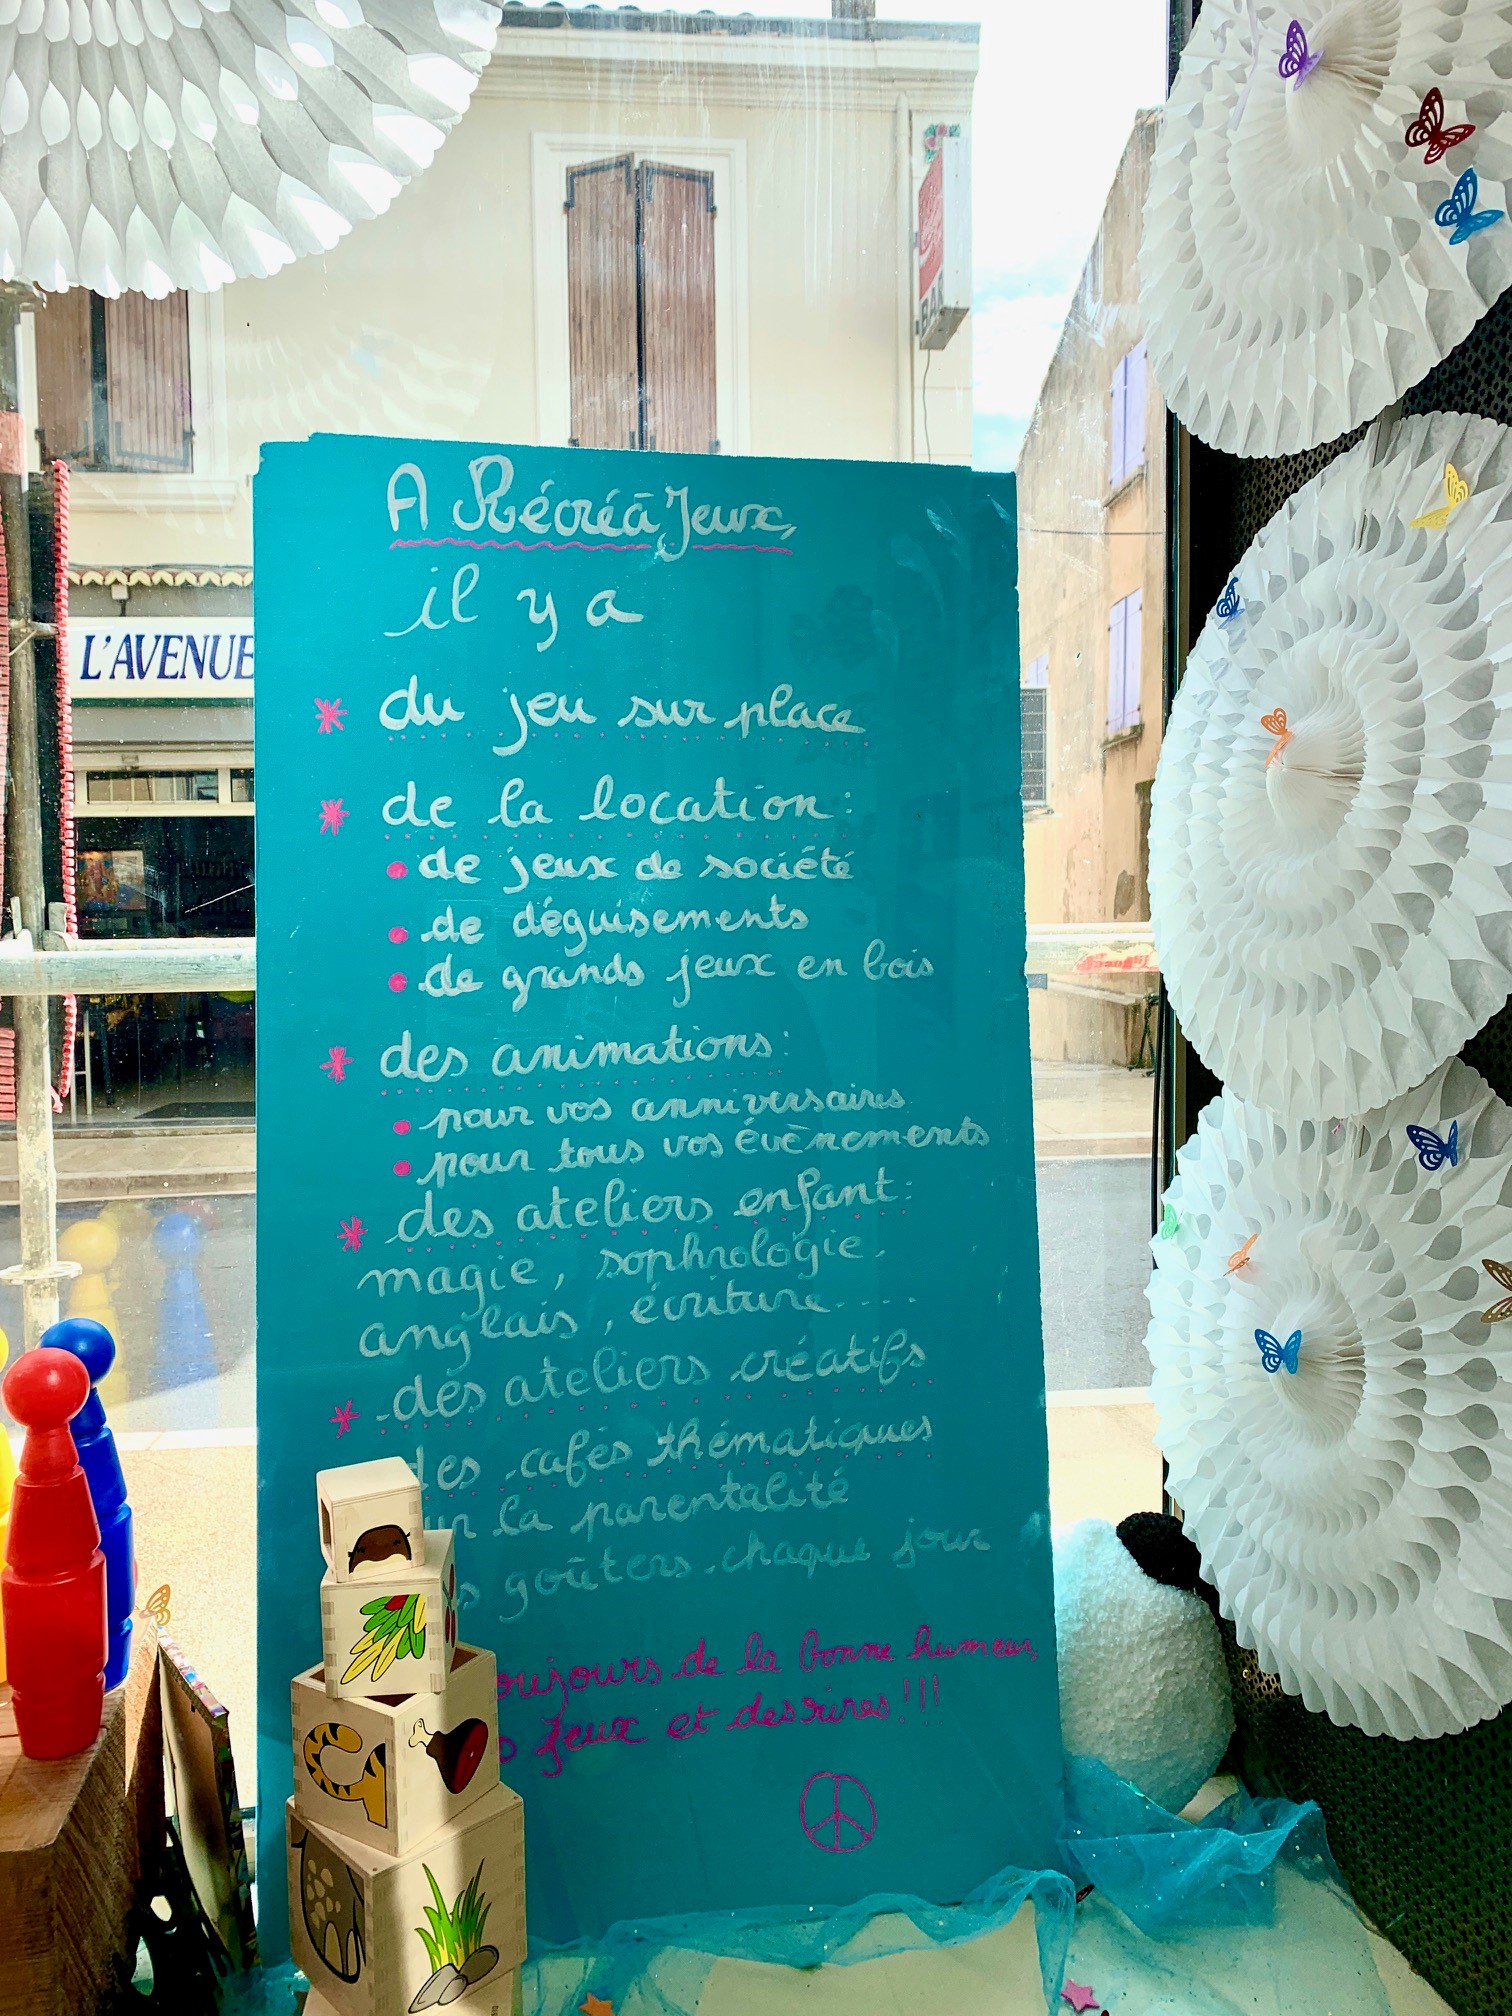 A Récréà Jeux,
il y a
* du jeu sur place
* de la location:
• de jeux de société
• de déguisements
• de grands jeux en bois
* des animations:
• pour vos anniversaires
• pour tous vos évènements
* des ateliers enfant:
magie, sophrologie.
anglais, écriture....
* des ateliers créatifs
des cafés thématiques
la parentalité
goûters chaque jour
de la bonne humeur,
jeux et des rires!!!
L'AVENUE
BAR